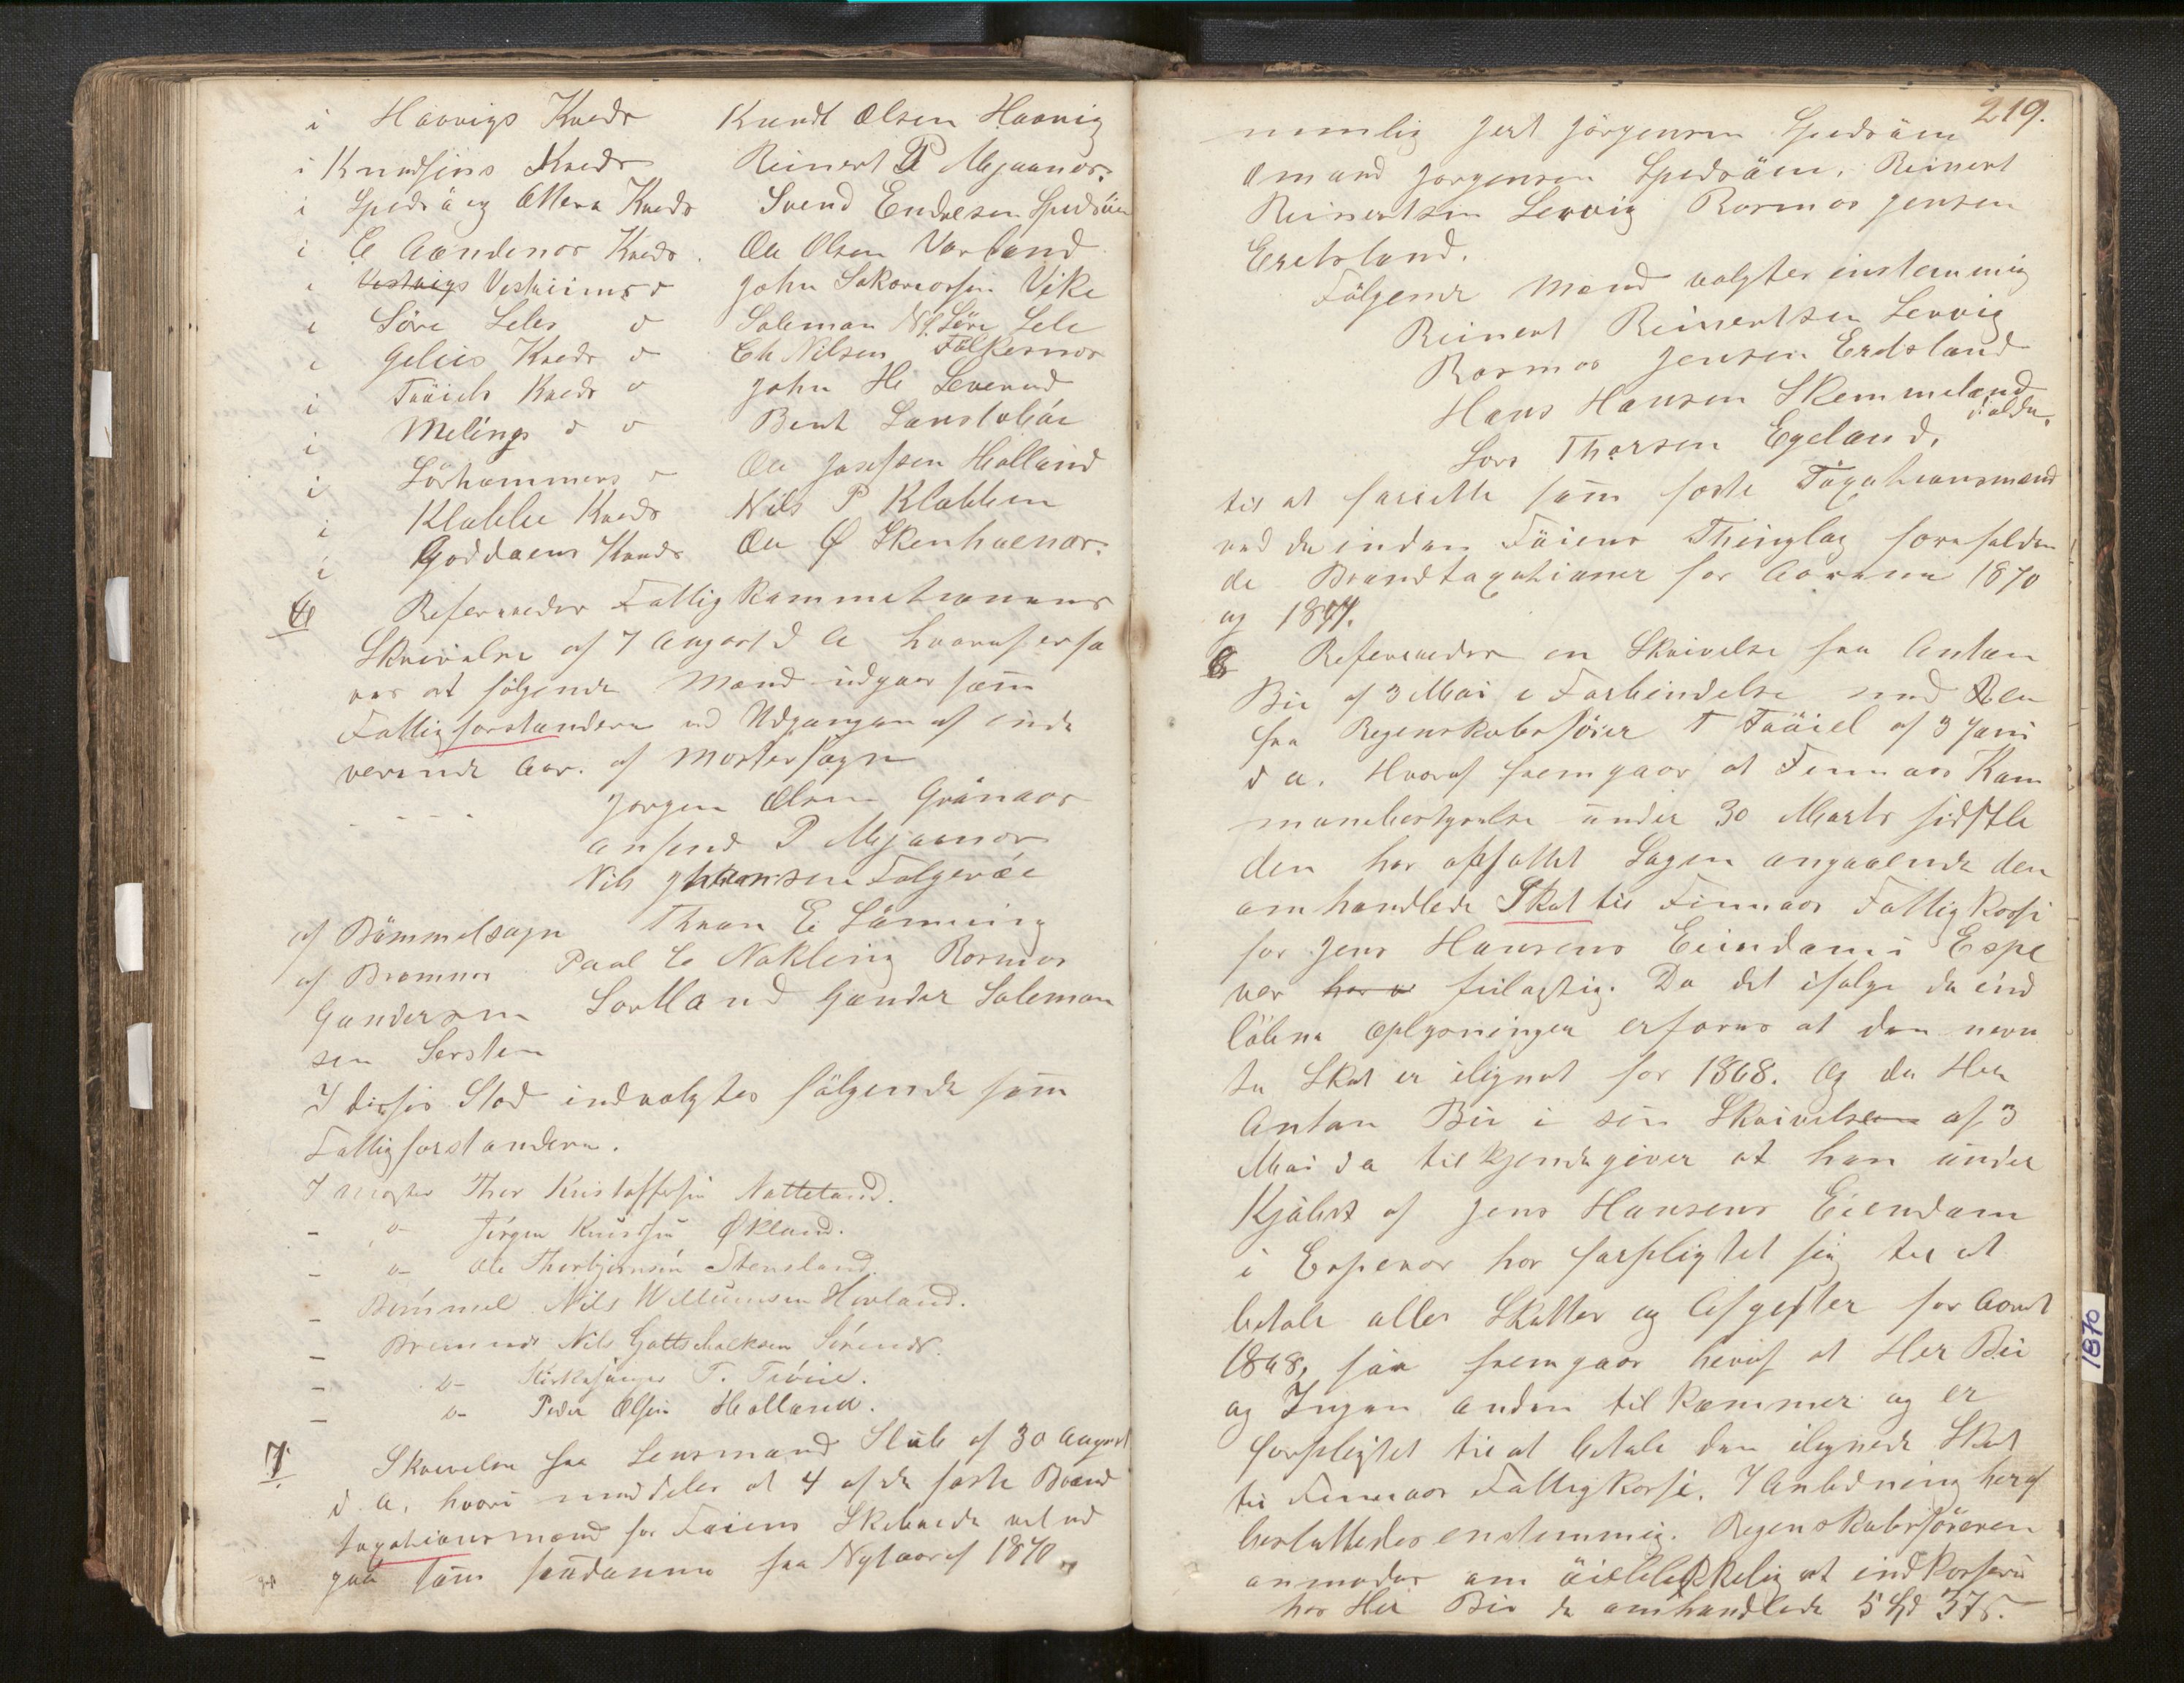 i Haavigs Kreds Knudt Olsen Haavig
i Knudsens Kreds Reinert P Mjaanæs.
i Spedsö og Ottera Kreds Svend Endresen Spedsöen
i E Aandenæs Kreds. Ole Olsen Vorland
i Vestvigs Vestviims d John Sakariasen Vike
i Söre Leles d Salemon N. Söre Lele
i Gelies Kreds d Ch Nilsen Folkesnæs
i Fröiels Kreds d John Hi Levenud
i Melings d d Bent
i Lörhammers d Ole Josefsen Holland
i Klubbe Kreds Nils P Klubben
i Goddaens Kreds Ole Ø Skenhaenæs.
6 Refereredes Fattigkommitionens
Skrivelse af 7 August d A hvoraf erfa
res at følgende Mænd udgaar som
Fattigforstandere ved Udgangen af inde
verende Aar. af Mostersogn
Jørgen Olsen Grönaas
Ansend P Mjaanæs
Nils Johannsen Folgeröe
af Bömmelsogn Thron E Lönning
af Bremnes Paal E Nøkling Rasmus
Gundersen Sortland Gunder Salemon
sen Sersten
I disses Sted indvalgtes fölgende som
Fattigforstandere.
I Moster Thor Kristoffersen Natteland.
- o- Jörgen Knudsen Økland.
- o- Ole Thorbjörnsen Stensland.
- Bömmel Nils Willumsen Hovland.
- Bremnes Nils Gottschalksen Sörenes.
- o- Kirkesanger T. Fröiel.
- o- Peder Olsen Holland.
7. Skrivelse fra Lensmand Stub af 30 August
d. A. hvori meddeles at 4 af de faste Brand
taxationsmænd for Föiens Skibrede vil ud
gaa som saadanne fra Nytaar af 1870
219.
nemlig Jert Jörgensen Spedsöen
Omund Jorgensen Spedsöen, Reinert
Reinertsen Lervig Rasmus Jensen
Eretsland.
Fölgende Mænd valgtes enstemmig
Reinert Reinertsen Lervig
Rasmus Jensen Eretsland
Hans Hansen Skemmeland
Lars Thorsen Egeland.
til at forrette som faste Taxationsmænd
ved de inden Föiens Thinglag forefalden
de Brandtaxationer for Aarene 1870
og 1871.
8 Refereredes en Skrivelse fra Anton
Bie af 3 Mai i Forbindelse med
fra Regnskabsförer T Fröiel af 3 Juni
d a. Hvoraf fremgaar at Finnaas Kom
munebestyrelse under 30 Marts sidstle
den har opfattet Sagen angaaende den
omhandlede Skat til Finnaas Fattigkasse
for Jens Hansens Eiendom i Espe
vær har v feilagtig. Da det ifølge de ind
löbne Oplysninger erfares at den nevn
te Skat er ilignet for 1868. Og da Her
Anton Bie i sin Skrivelse af 3
Mai d a tilkjendegiver at han under
Kjøbet af Jens Hansens Eiendom
i Espevær har forpligtet sig til at
betale alle Skatter og Afgifter for Aaret
1868, saa fremgaar heraf at Her Bie
og Ingen anden tilkommer og er
forpligtet til at betale den ilignede Skat
til Finnaas Fattigkasse. I Anledning heraf
besluttedes enstemmig. Regnskabsföreren
anmodes om öieblikkelig at indkassere
hos Her Bie de omhandlede 5 Spd 37 s.
1870